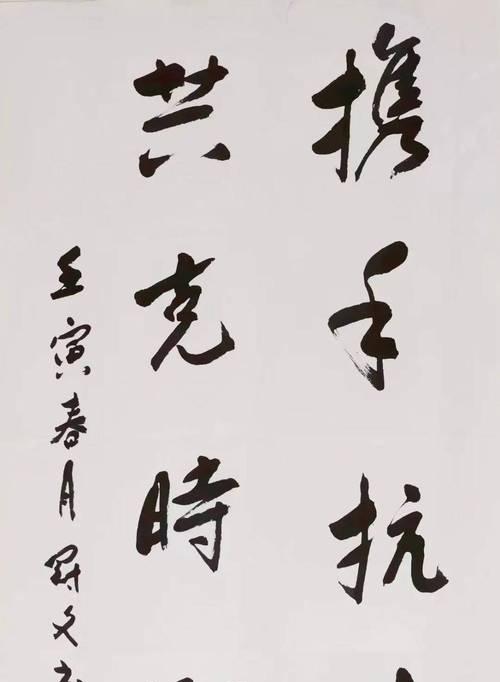 携手抗
共克時
壬寅春月